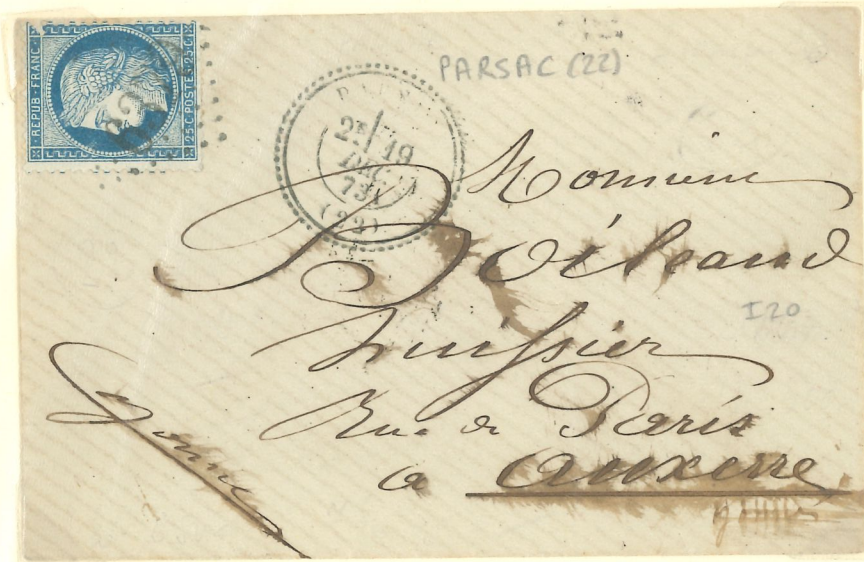 REPUB · FRANC ·
25 · C · POSTES · 25 · C ·
PARSAC (22)
2E
19
DEC.
73
(22)
Monsieur
Boileaud
huissier
I20
Rue de Paris
a auxerre
Yonne